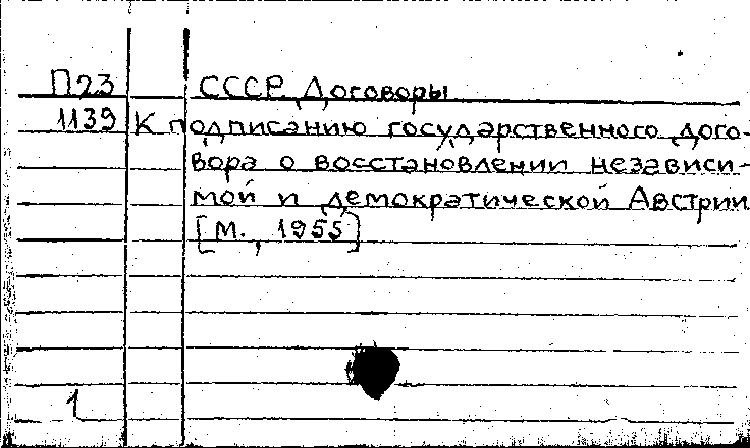 П23 СССР. Договоры
1139 К подписанию государственного дого-
вора о восстановлении независи-
мой и демократической Австрии
[М., 1955]
1